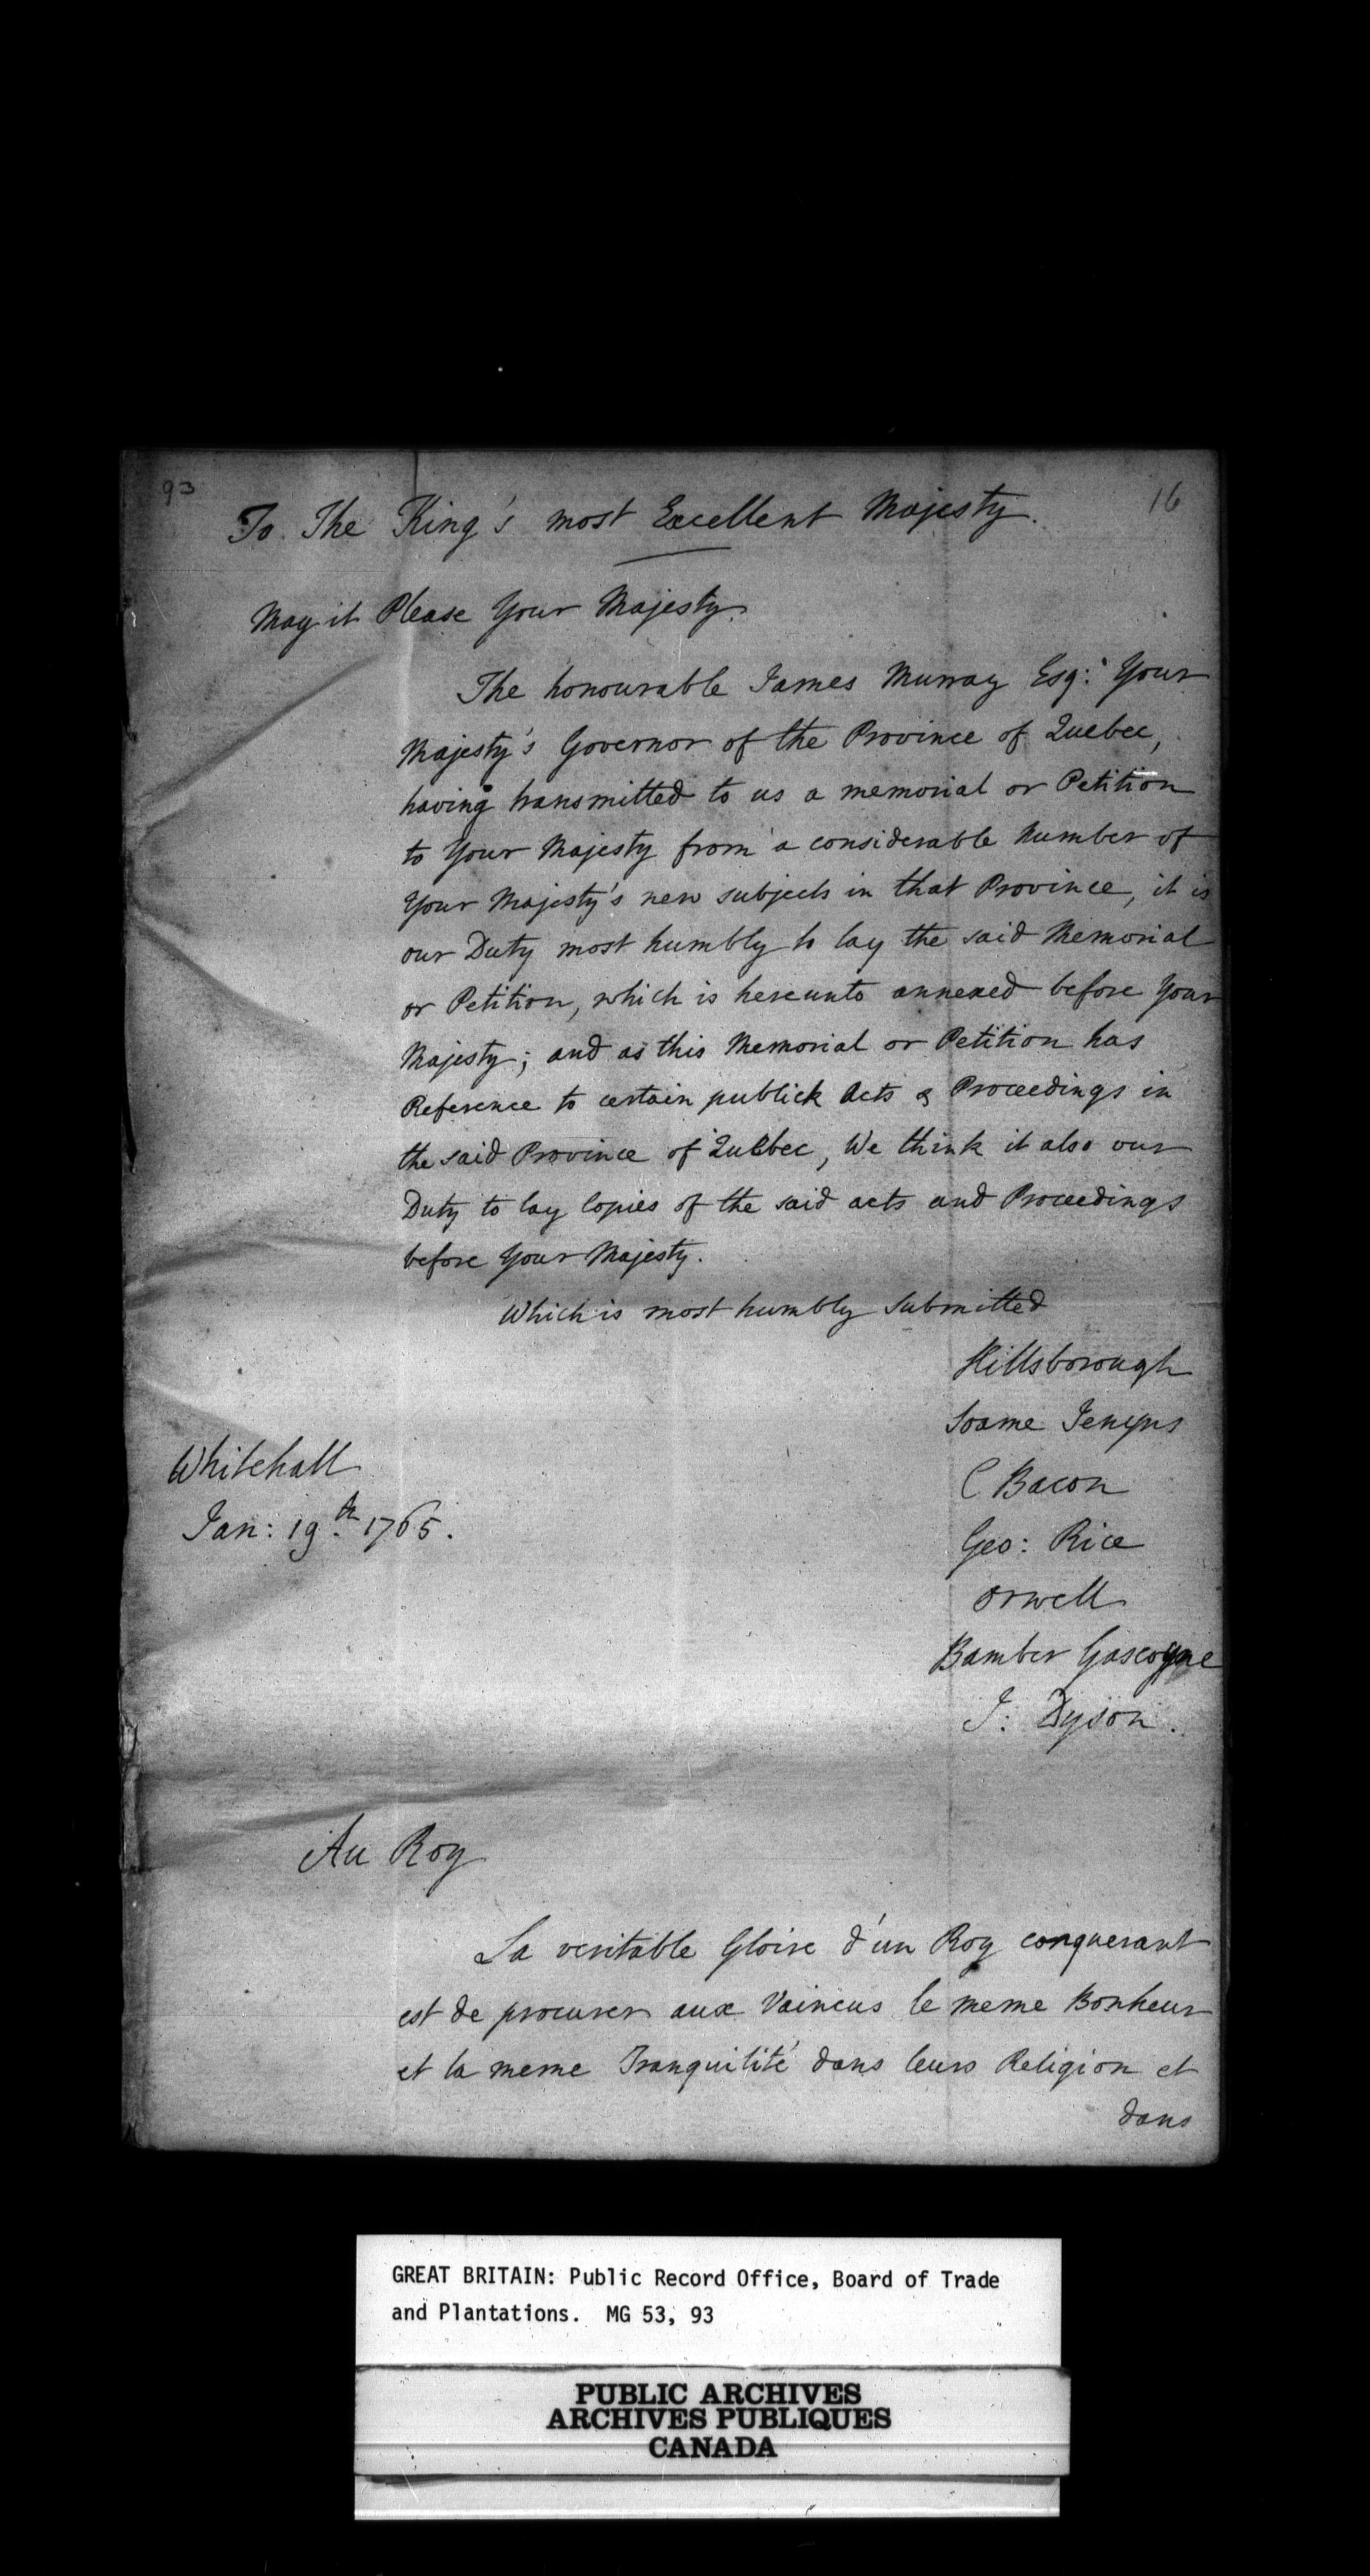 93
16
To The King's most Excellent Majesty.
May it Please Your Majesty.
The honourable James Murray Esq:r Your
Majesty's Governor of the Province of Quebec,
having transmitted to us a memorial or Petition
to Your Majesty from a considerable Number of
Your Majesty's new subjects in that Province, it is
our Duty most humbly to lay the said Memorial
or Petition, which is hereunto annexed before Your
Majesty; and as this Memorial or Petition has
Reference to certain publick Acts & Proceedings in
the said Province of Quebec, We think it also our
Duty to lay Copies of the said acts and Proceedings
before Your Majesty.
Which is most humbly Submitted
Hillsborough
Soame Jenyns
Whitehall
C Bacon
Jan: 19th 1765.
Geo: Rice
Orwell
Bamber Gascoyne
J: Dyson.
Au Roy
La veritable Gloire d'un Roy conquerant
est de procurer aux Vaincus le meme Bonheur
et la meme Tranquilité dans leurs Religion et
dans
GREAT BRITAIN: Public Record Office, Board of Trade
and Plantations. MG 53, 93
PUBLIC ARCHIVES
ARCHIVES PUBLIQUES
CANADA